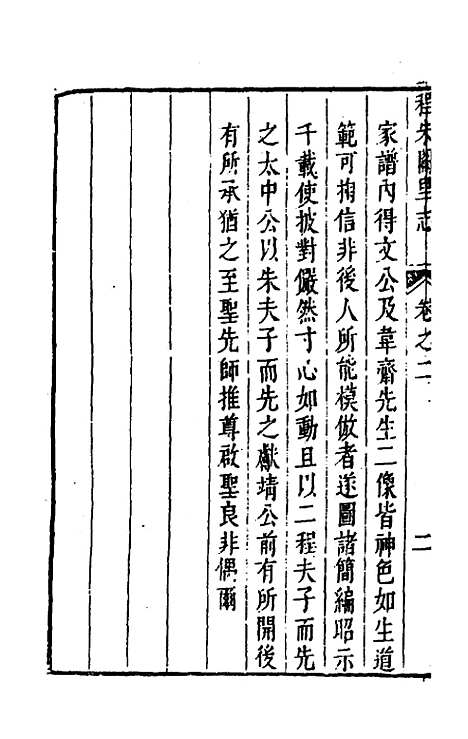 程朱闕里志 卷之二 二
家譜內得文公及韋齋先生二像皆神色如生道
範可掬信非後人所能模倣者遂圖諸簡編昭示
千載使披對儼然寸心如動且以二程夫子而先
之太中公以朱夫子而先之獻靖公前有所開後
有所承猶之至聖先師推尊啟聖良非偶爾